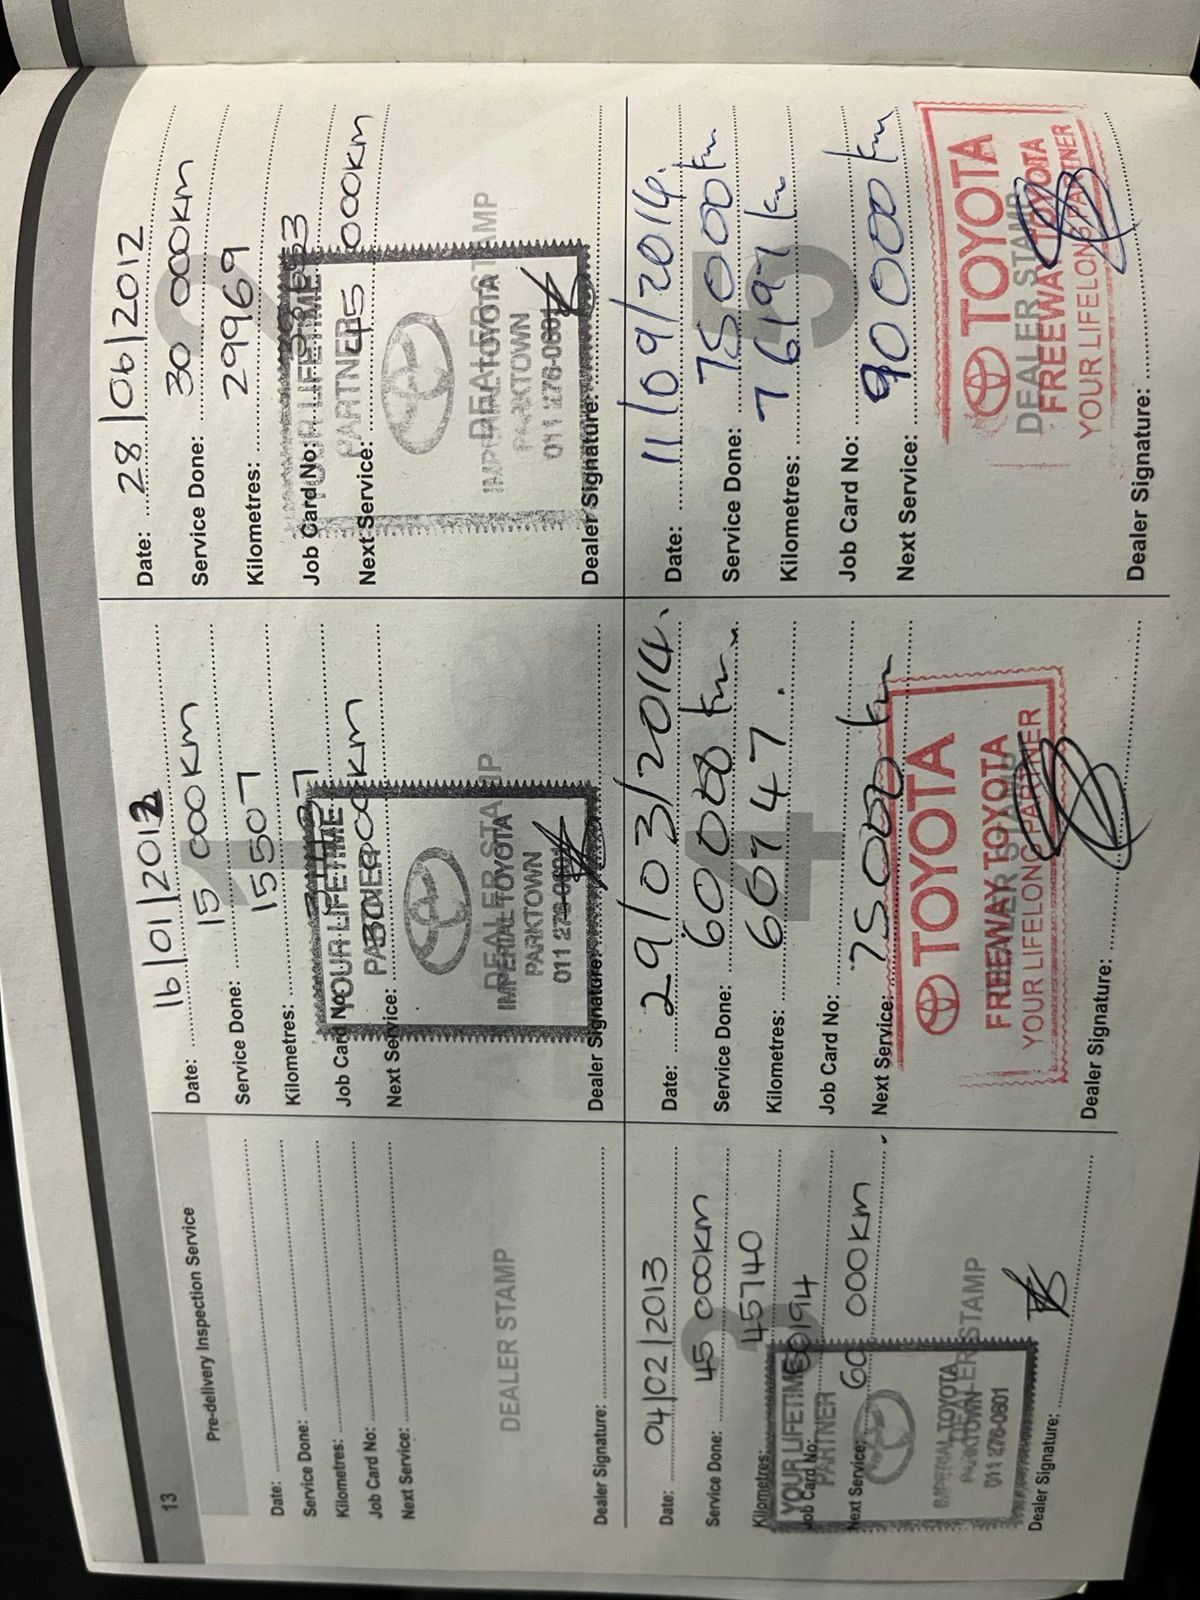 13
Pre-delivery Inspection Service
Date:
Service Done:
Kilometres:
Job Card No:
Next Service:
DEALER STAMP
Dealer Signature:
1
Date: 16/01/2012
Service Done: 15 000km
Kilometres: 15507
Job Card No:
YOUR LIFETIME
PARTNER
Next Service: 30 000km
DEALER STAMP
IMPERIAL TOYOTA
PARKTOWN
011 276-0801
Dealer Signature:
2
Date: 28/06/2012
Service Done: 30 000km
Kilometres: 29969
Job Card No:
YOUR LIFETIME
PARTNER
Next Service: 45 000km
DEALER STAMP
IMPERIAL TOYOTA
PARKTOWN
011 276-0801
Dealer Signature:
3
Date: 04/02/2013
Service Done: 45 000km
Kilometres: 45740
YOUR LIFETIME
Job Card No:
PARTNER
Next Service: 60 000km
IMPERIAL TOYOTA
DEALER STAMP
PARKTOWN
011 276-0801
Dealer Signature:
4
Date: 29/03/2014.
Service Done: 60000 km
Kilometres: 60747.
Job Card No:
Next Service: 75000 km
TOYOTA
DEALER STAMP
FREEWAY TOYOTA
YOUR LIFELONG PARTNER
Dealer Signature:
5
Date: 11/09/2014.
Service Done: 75000 km
Kilometres: 76197 km
Job Card No:
Next Service: 90000 km
TOYOTA
DEALER STAMP
FREEWAY TOYOTA
YOUR LIFELONG PARTNER
Dealer Signature: